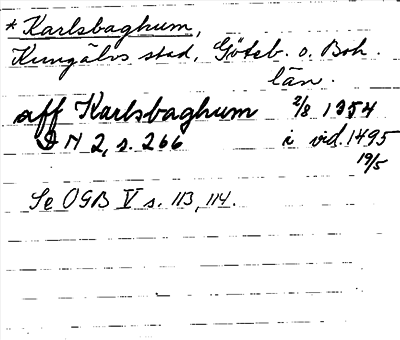 * Karlsbaghum,
Kungälvs stad, Göteb. o. Boh.
län.
aff Karlsbaghum 2/8 1354
DN 2, s. 266 i vid. 1495
19/5
Se OGB V s. 113, 114.